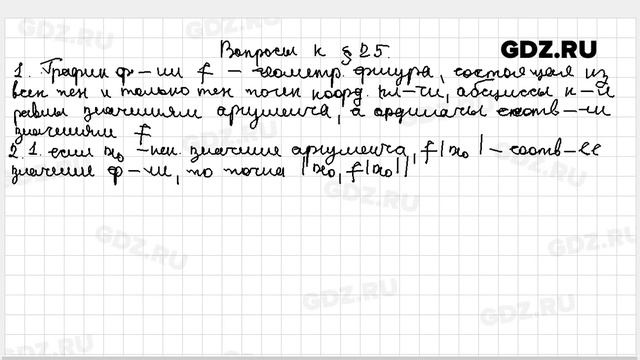 Вопросы к § 25.
GDZ.RU
1. График ф-ии f - геометр. фигура, состоящая из
всех тех и только тех точек коорд. пл-ти, абсциссы к-й
равны значениям аргумента, а ординаты соотв-ми
значениями f
2. 1. если x₀ - нек. значение аргумента, f(x₀) - соотв-ее
значение ф-ии, то точка (x₀, f(x₀))